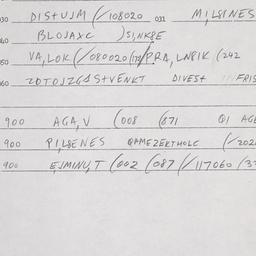 030 DISTUJM (/108020 031 MILSINES
040 BLOJAXC )SI,NKPE
050 VA,LOK (/080020/ PRA,LNPIK (242
060 ZOTOJZGASTVENKT DIVEST FRIS
900 AGA,V (008 (071 QI AGE
900 PI,LSENES QAMEZEKTHOLC (/202
900 EJMINU,T (002 (087 (/117060 (3